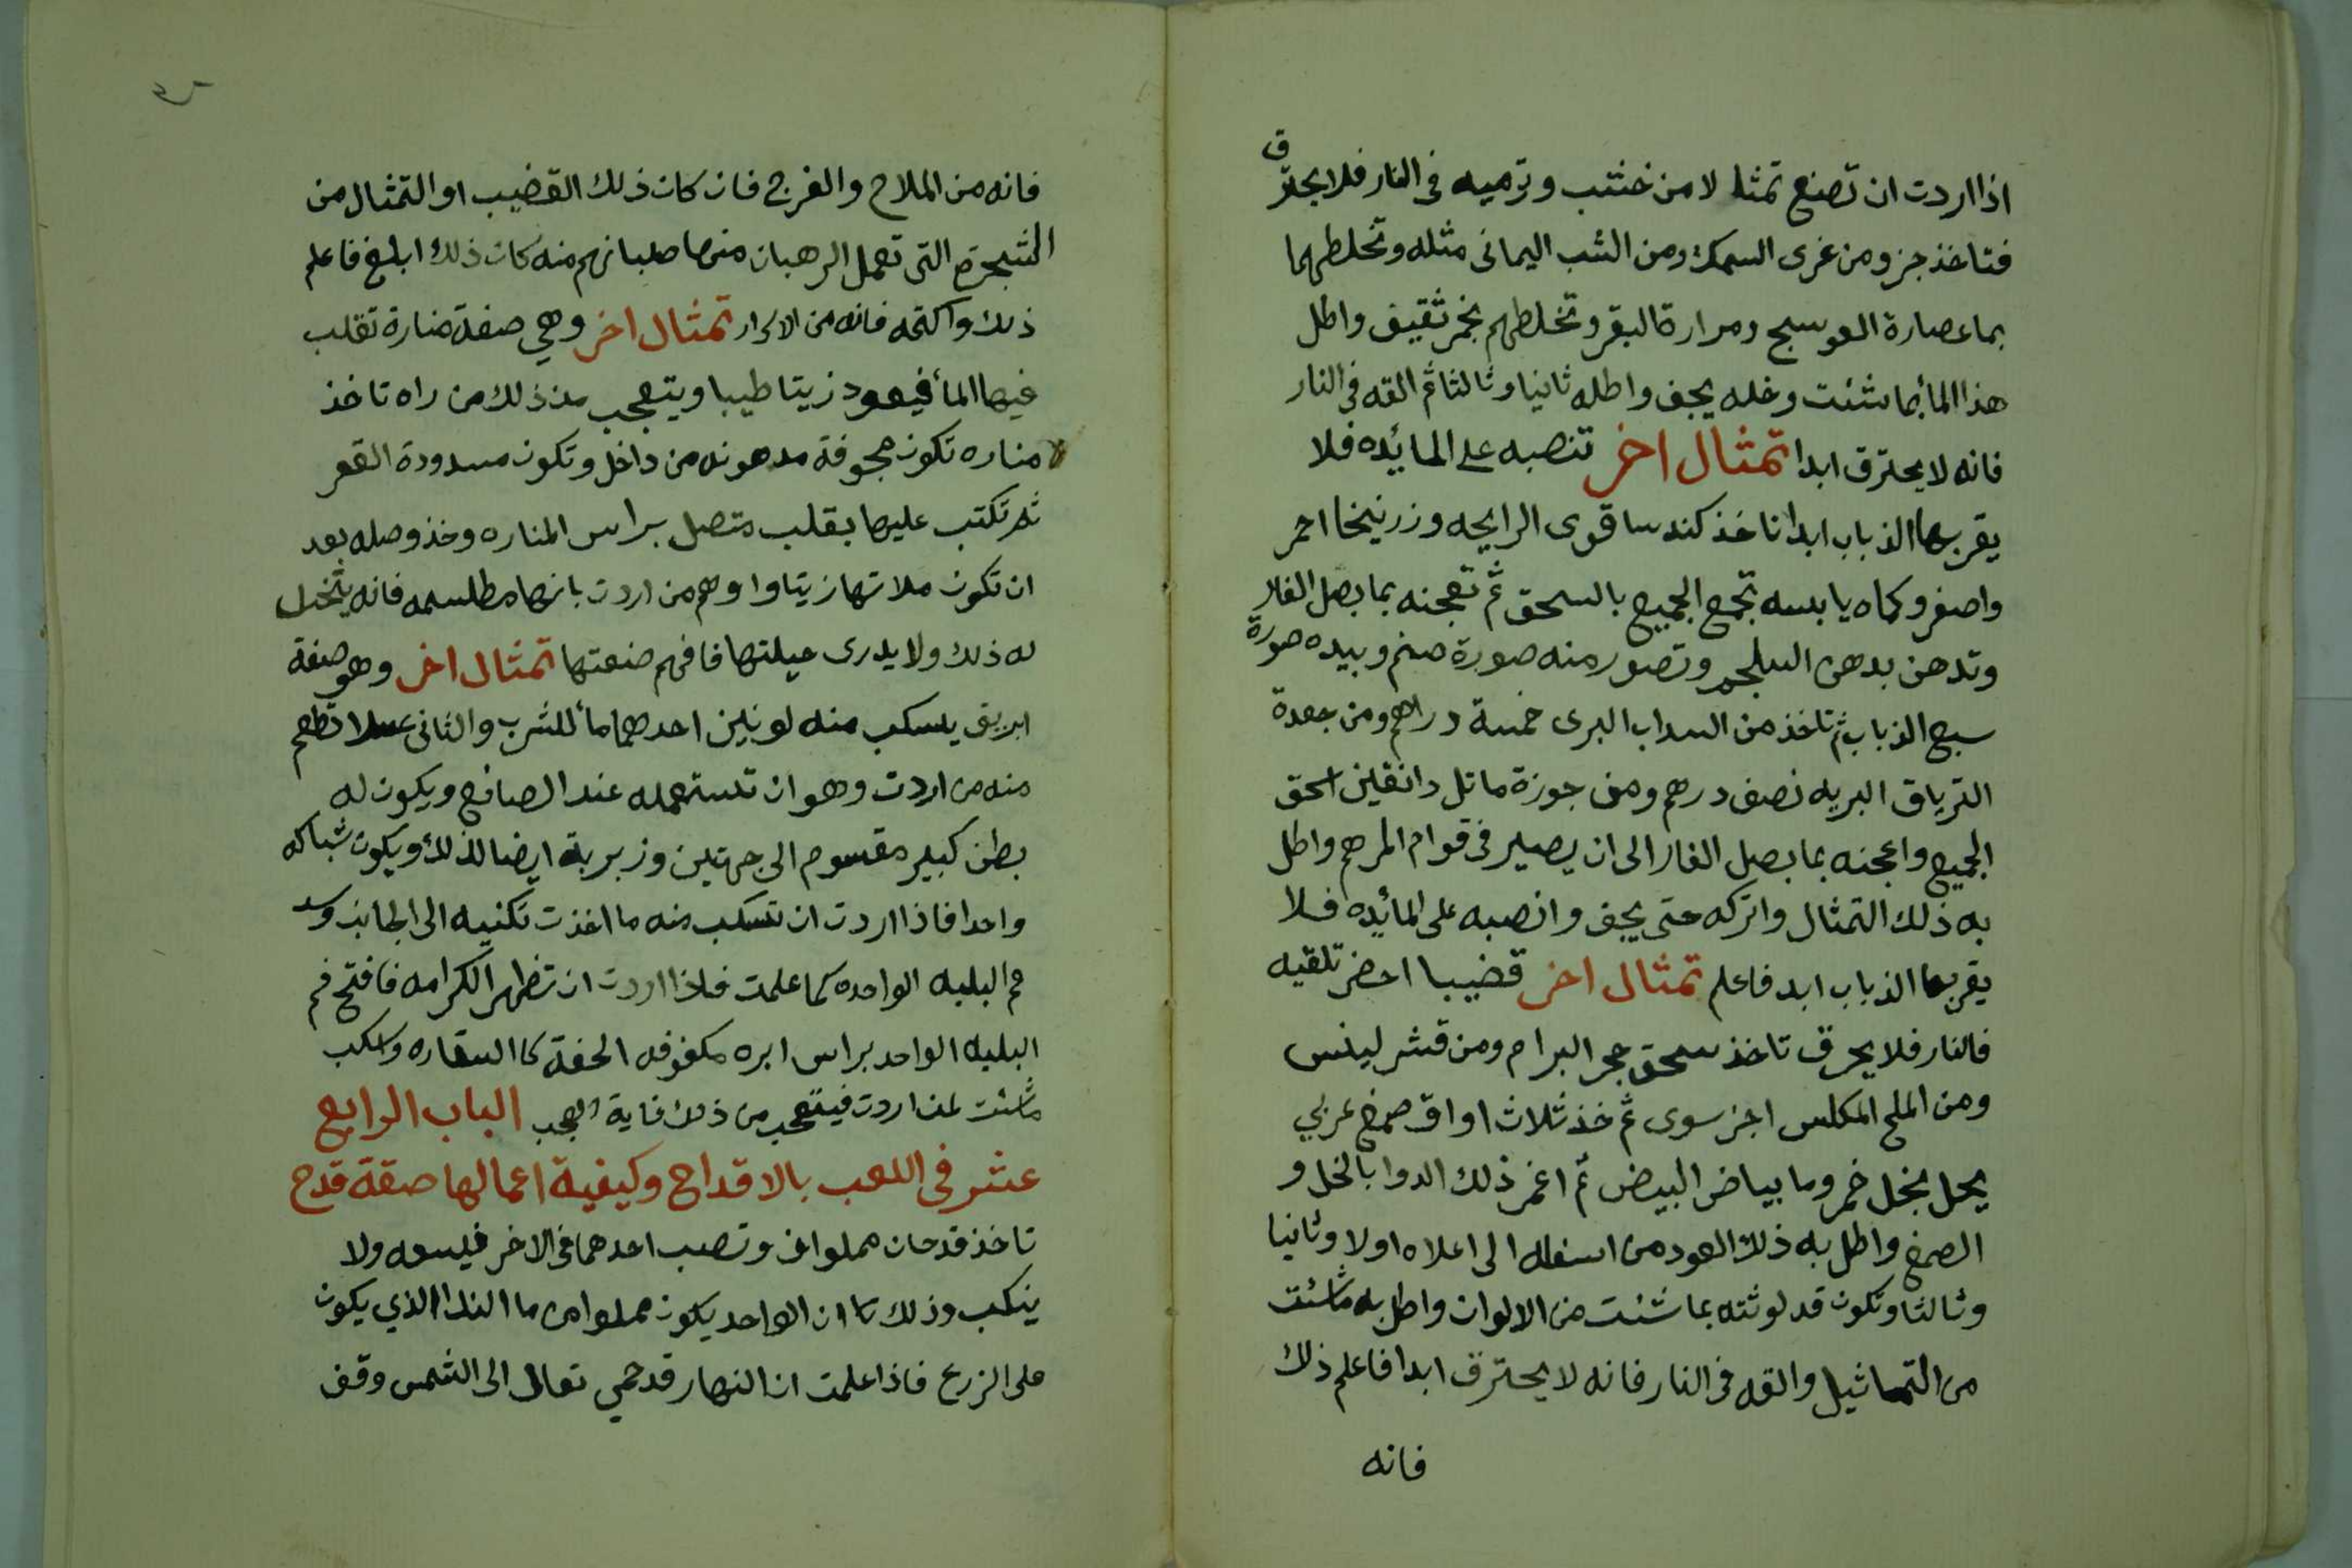 اذا اردت ان تصنع تمثالا من خشب وترميه فى النار فلا يحترق
فتاخذ جزو من غرى السمك ومن الشب اليمانى مثله وتخلطهما
بما عصارة العوسج ومرارة البقر وتخلطهم بخمر ثقيف واطل
هذا الما بما شئت وخله يجف واطله ثانيا وثالثا ثم القه فى النار
فانه لا يحترق ابدا تمثال اخر تنصبه على المائده فلا
يقربها الذباب ابدا تاخذ كندسا قوى الرايحه وزرنيخا احمر
واصفر وكماه يابسه تجمع الجميع بالسحق ثم تعجنه بما بصل الفار
وتدهن بدهن السلجم وتصور منه صورة صنم وبيده صورة
سبع الذباب ثم تاخذ من السداب البرى خمسة دراهم ومن جعدة
الترياق البريه نصف درهم ومن جوزة ماثل دانقين اسحق
الجميع واعجنه بما بصل الفار الى ان يصير فى قوام المرهم واطل
به ذلك التمثال واتركه حتى يجف وانصبه على المائده فلا
يقربها الذباب ابد فاعلم تمثال اخر قضيبا اخضر تلقيه
فالنار فلا يحرق تاخذ سحق حجر البرام ومن قشر لينس
ومن الملح المكلس اجز سوى ثم خذ ثلاث اواق صمغ عربي
يحل بخل خمر وما بياض البيض ثم اغمر ذلك الدوا بالخل و
الصمغ واطل به ذلك العود من اسفله الى اعلاه اولا وثانيا
وثالثا وتكون قد لوثته بما شئت من الالوان واطل به ما شئت
من التماثيل والقه فى النار فانه لا يحترق ابدا فاعلم ذلك
فانه
فانه من الملاح والفرج فان كان ذلك القضيب او التمثال من
الشجرة التى تعمل الرهبان منها صلبانهم منه كان ذلك ابلغ فاعلم
ذلك واكتمه فانه من الاسرار تمثال اخر وهي صفة منارة تقلب
فيها الما فيعود زيتا طيبا ويتعجب من ذلك من راه تاخذ
مناره تكون مجوفة مدهونه من داخل وتكون مسدودة القعر
ثم تكتب عليها بقلب متصل براس المناره وخذ وصله بعد
ان تكون ملاتها زيتا واوهم من اردت بانها مطلسمه فانه يتخيل
له ذلك ولا يدرى حيلتها فافهم صنعتها تمثال اخر وهو صفة
ابريق يسكب منه لونين احدهما ما للشرب والثانى عسلا تطعم
منه من اردت وهو ان تستعمله عند الصانع ويكون له
بطن كبير مقسوم الى جهتين وزبربة ايضا لذلك ويكون شباكه
واحدا فاذا اردت ان تسكب منه ما اخذت تكنيه الى الجانب وسد
فم البلبله الواحده كما علمت فاذا اردت ان تظهر الكرامه فافتح فم
البلبله الواحد براس ابره مكفوفه الحفة كا السقاره واسكب
ما شئت لمن اردت فيتعجب من ذلك غاية العجب الباب الرابع
عشر فى اللعب بالاقداح وكيفية اعمالها صفة قدح
تاخذ قدحان مملوان وتصب احدهما فى الاخر فيسعه ولا
ينكب وذلك ان الواحد يكون مملوا من ما الندا الذي يكون
على الزرع فاذا علمت ان النهار قد حمي تعال الى الشمس وقف